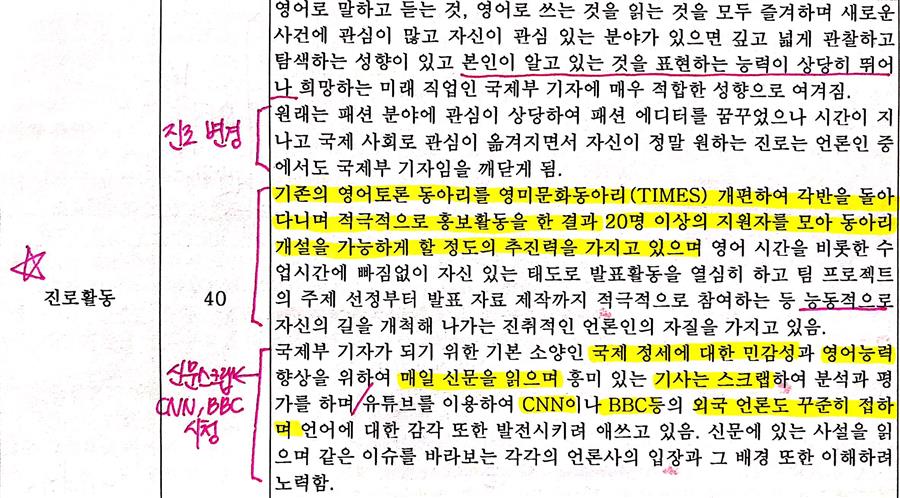 영어로 말하고 듣는 것, 영어로 쓰는 것을 읽는 것을 모두 즐겨하며 새로운
사건에 관심이 많고 자신이 관심 있는 분야가 있으면 깊고 넓게 관찰하고
탐색하는 성향이 있고 본인이 알고 있는 것을 표현하는 능력이 상당히 뛰어
나 희망하는 미래 직업인 국제부 기자에 매우 적합한 성향으로 여겨짐.
진로 변경
원래는 패션 분야에 관심이 상당하여 패션 에디터를 꿈꾸었으나 시간이 지
나고 국제 사회로 관심이 옮겨지면서 자신이 정말 원하는 진로는 언론인 중
에서도 국제부 기자임을 깨닫게 됨.
기존의 영어토론 동아리를 영미문화동아리(TIMES) 개편하여 각반을 돌아
다니며 적극적으로 홍보활동을 한 결과 20명 이상의 지원자를 모아 동아리
개설을 가능하게 할 정도의 추진력을 가지고 있으며 영어 시간을 비롯한 수
업시간에 빠짐없이 자신 있는 태도로 발표활동을 열심히 하고 팀 프로젝트
진로활동
40
의 주제 선정부터 발표 자료 제작까지 적극적으로 참여하는 등 능동적으로
자신의 길을 개척해 나가는 진취적인 언론인의 자질을 가지고 있음.
신문스크랩
CNN, BBC
시청
국제부 기자가 되기 위한 기본 소양인 국제 정세에 대한 민감성과 영어능력
향상을 위하여 매일 신문을 읽으며 흥미 있는 기사는 스크랩하여 분석과 평
가를 하며 유튜브를 이용하여 CNN이나 BBC등의 외국 언론도 꾸준히 접하
며 언어에 대한 감각 또한 발전시키려 애쓰고 있음. 신문에 있는 사설을 읽
으며 같은 이슈를 바라보는 각각의 언론사의 입장과 그 배경 또한 이해하려
노력함.